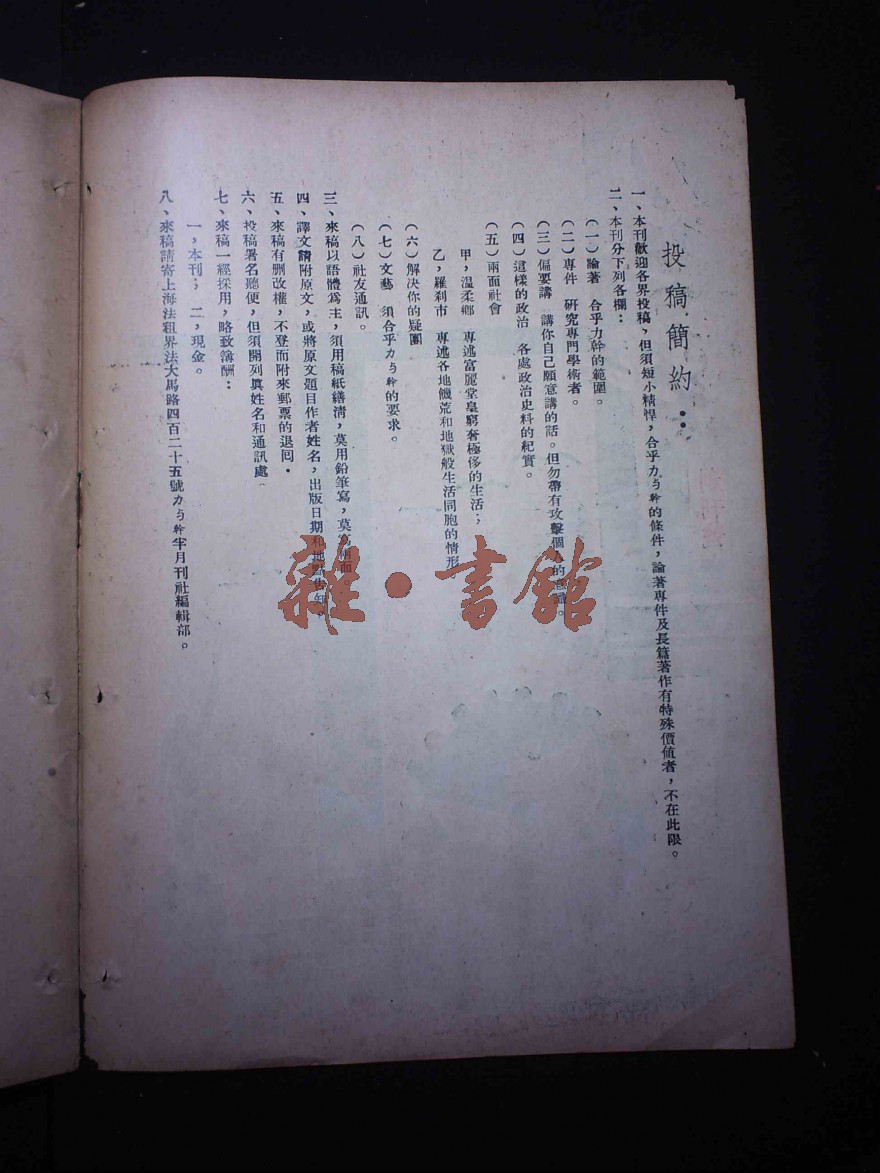 投稿簡約：
一、本刊歡迎各界投稿，但須短小精悍，合乎力与幹的條件，論著專件及長篇著作有特殊價値者，不在此限。
二、本刊分下列各欄：
（一）論著　合乎力幹的範圍。
（二）專件　研究專門學術者。
（三）偏要講　講你自己願意講的話。但勿帶有攻擊個人的
（四）這樣的政治　各處政治史料的紀實。
（五）兩面社會
甲，温柔鄉　專述富麗堂皇窮奢極侈的生活；
乙，羅刹市　專述各地饑荒和地獄般生活同胞的情形
（六）解决你的疑團
（七）文藝　須合乎力与幹的要求。
（八）社友通訊。
三、來稿以語體爲主，須用稿紙繕清，莫用鉛筆寫，莫寫兩面
四、譯文請附原文，或將原文題目作者姓名，出版日期和地點告知。
五、來稿有删改權，不登而附來郵票的退囘．
六、投稿署名聽便，但須開列眞姓名和通訊處
七、來稿一經採用，略致薄酬：
一，本刊；　二，現金。
八、來稿請寄上海法租界法大馬路四百二十五號力与幹半月刊社編輯部。
雜·書館